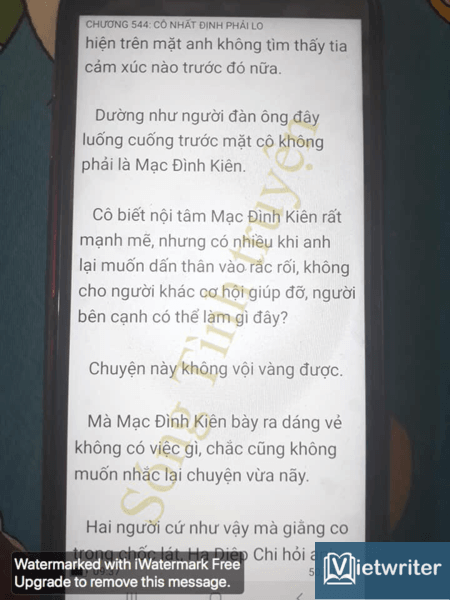 CHƯƠNG 544: CÔ NHẤT ĐỊNH PHẢI LO
hiện trên mặt anh không tìm thấy tia
cảm xúc nào trước đó nữa.
Dường như người đàn ông đây
luống cuống trước mặt cô không
phải là Mạc Đình Kiên.
Cô biết nội tâm Mạc Đình Kiên rất
mạnh mẽ, nhưng có nhiều khi anh
lại muốn dấn thân vào rắc rối, không
cho người khác cơ hội giúp đỡ, người
bên cạnh có thể làm gì đây?
Chuyện này không vội vàng được.
Mà Mạc Đình Kiên bày ra dáng vẻ
không có việc gì, chắc cũng không
muốn nhắc lại chuyện vừa nãy.
Hai người cứ như vậy mà giằng co
trong chốc lát, Hạ Diệp Chi hỏi
09:37
Sóng Tình truyện
Watermarked with iWatermark Free
Upgrade to remove this message.
Vietwriter